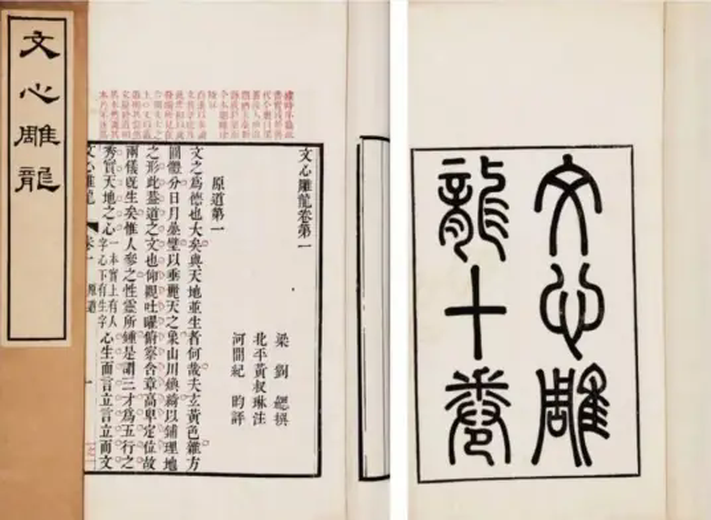 文心雕龍
文心雕龍卷第一
梁劉勰撰
北平黃叔琳注
河間紀昀評
原道第一
文之爲德也大矣與天地並生者何哉夫玄黃色雜方
圓體分日月疊璧以垂麗天之象山川煥綺以鋪理地
之形此蓋道之文也仰觀吐曜俯察含章高卑定位故
兩儀旣生矣惟人參之性靈所鍾是謂三才爲五行之
秀實天地之心一本實上有人字心下有生字心生而言立言立而文
文心雕龍 卷一 原道 一
文心雕
龍十卷